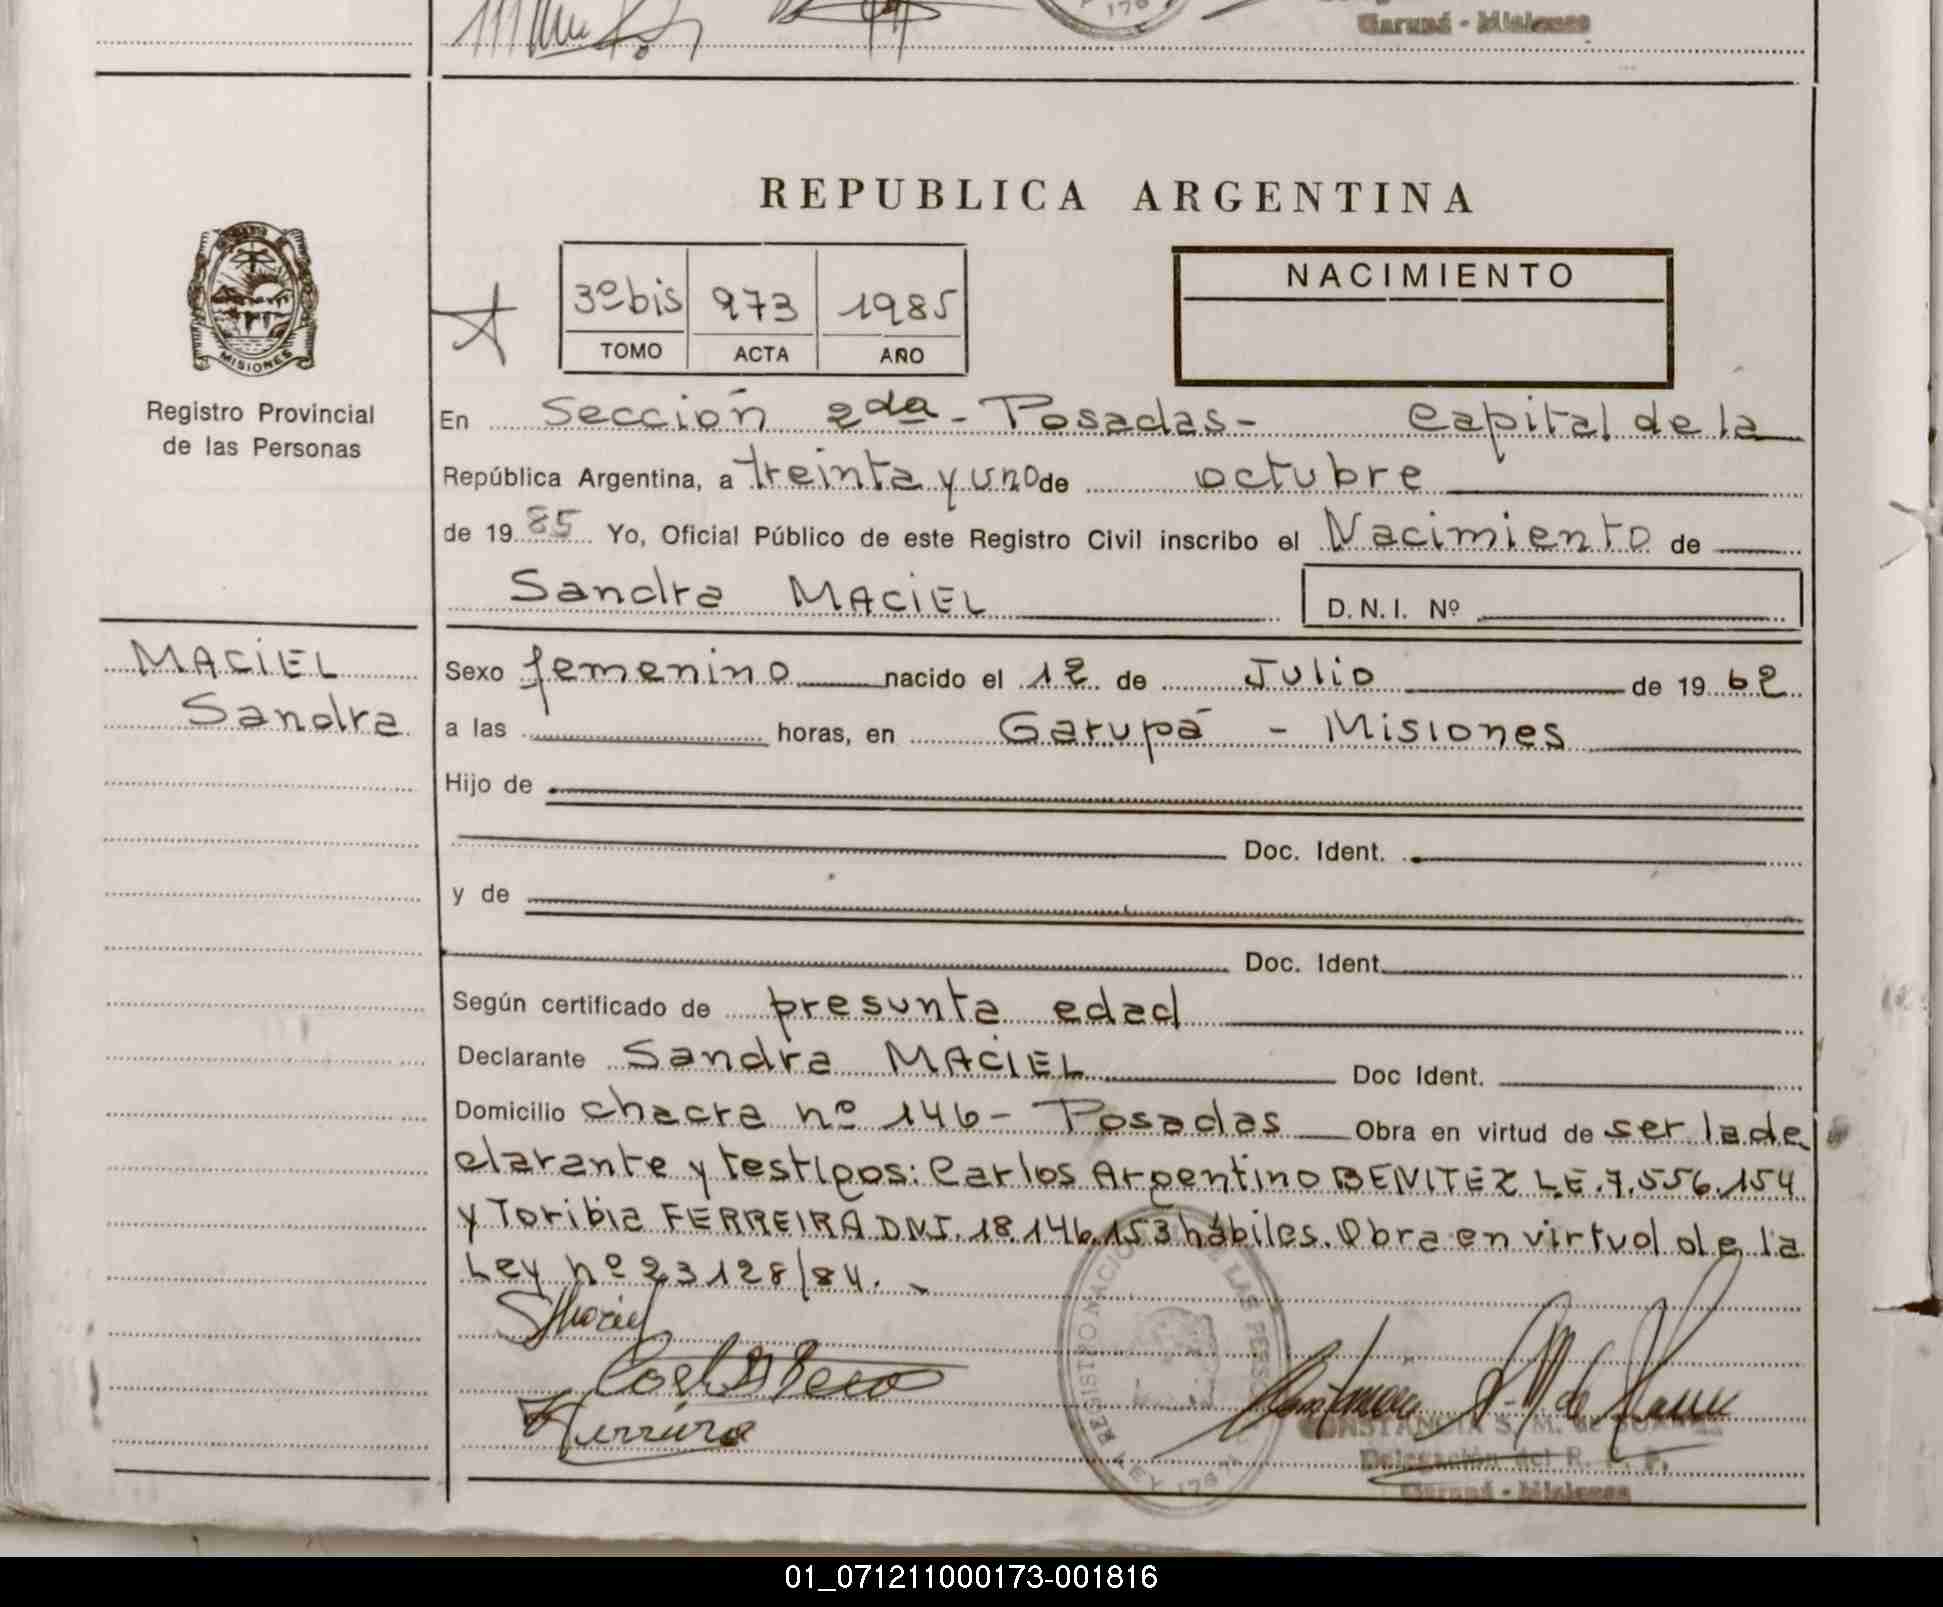 Garupá - Misiones
REPUBLICA ARGENTINA
MISIONES
Registro Provincial
de las Personas
3º bis 973 1985
TOMO ACTA AÑO
NACIMIENTO
En Sección 2da - Posadas - Capital de la
República Argentina, a treinta y uno de octubre
de 1985 Yo, Oficial Público de este Registro Civil inscribo el Nacimiento de
Sandra MACIEL D.N.I. Nº
MACIEL
Sandra
Sexo femenino nacido el 12 de Julio de 1962
a las horas, en Garupá - Misiones
Hijo de
Doc. Ident.
y de
Doc. Ident.
Según certificado de presunta edad
Declarante Sandra MACIEL Doc Ident.
Domicilio chacra nº 146 - Posadas Obra en virtud de ser la de
clarante y testigos: Carlos Argentino BENITEZ L.E. 7.556.154
y Toribia FERREIRA DNI. 18.146.153 hábiles. Obra en virtud de la
Ley nº 23128/84. -
SMaciel
REGISTRO NACIONAL DE LAS PERSONAS
LEY 1767
CONSTANCIA S. M. de
Delegación del R. P. P.
Garupá - Misiones
01_071211000173-001816